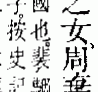 之女周棄
國也裴
子按史記